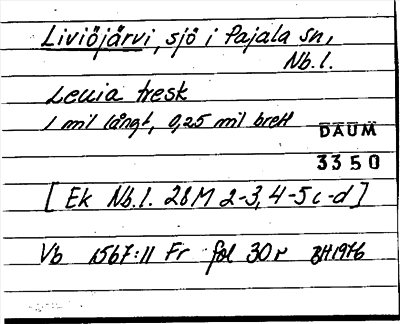 Liviöjärvi, sjö i Pajala sn,
Nb. l.
Leuia tresk
1 mil långt, 0,25 mil brett
DAUM
3350
[Ek Nb. l. 28M 2-3, 4-5 c-d]
Vb 1567:11 Fr fol 30r BH 1976